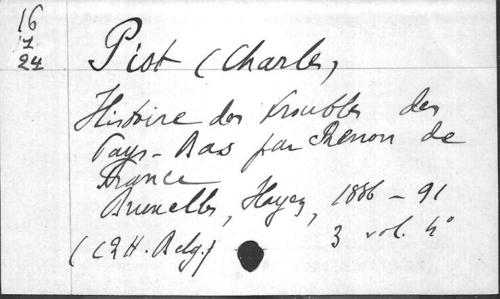 16
7
24
Piot (Charles)
Histoire des troubles des
Pays-Bas par Renon de
France
Bruxelles, Hayez, 1886-91
3 vol. 4°
(C R H. Belg.)